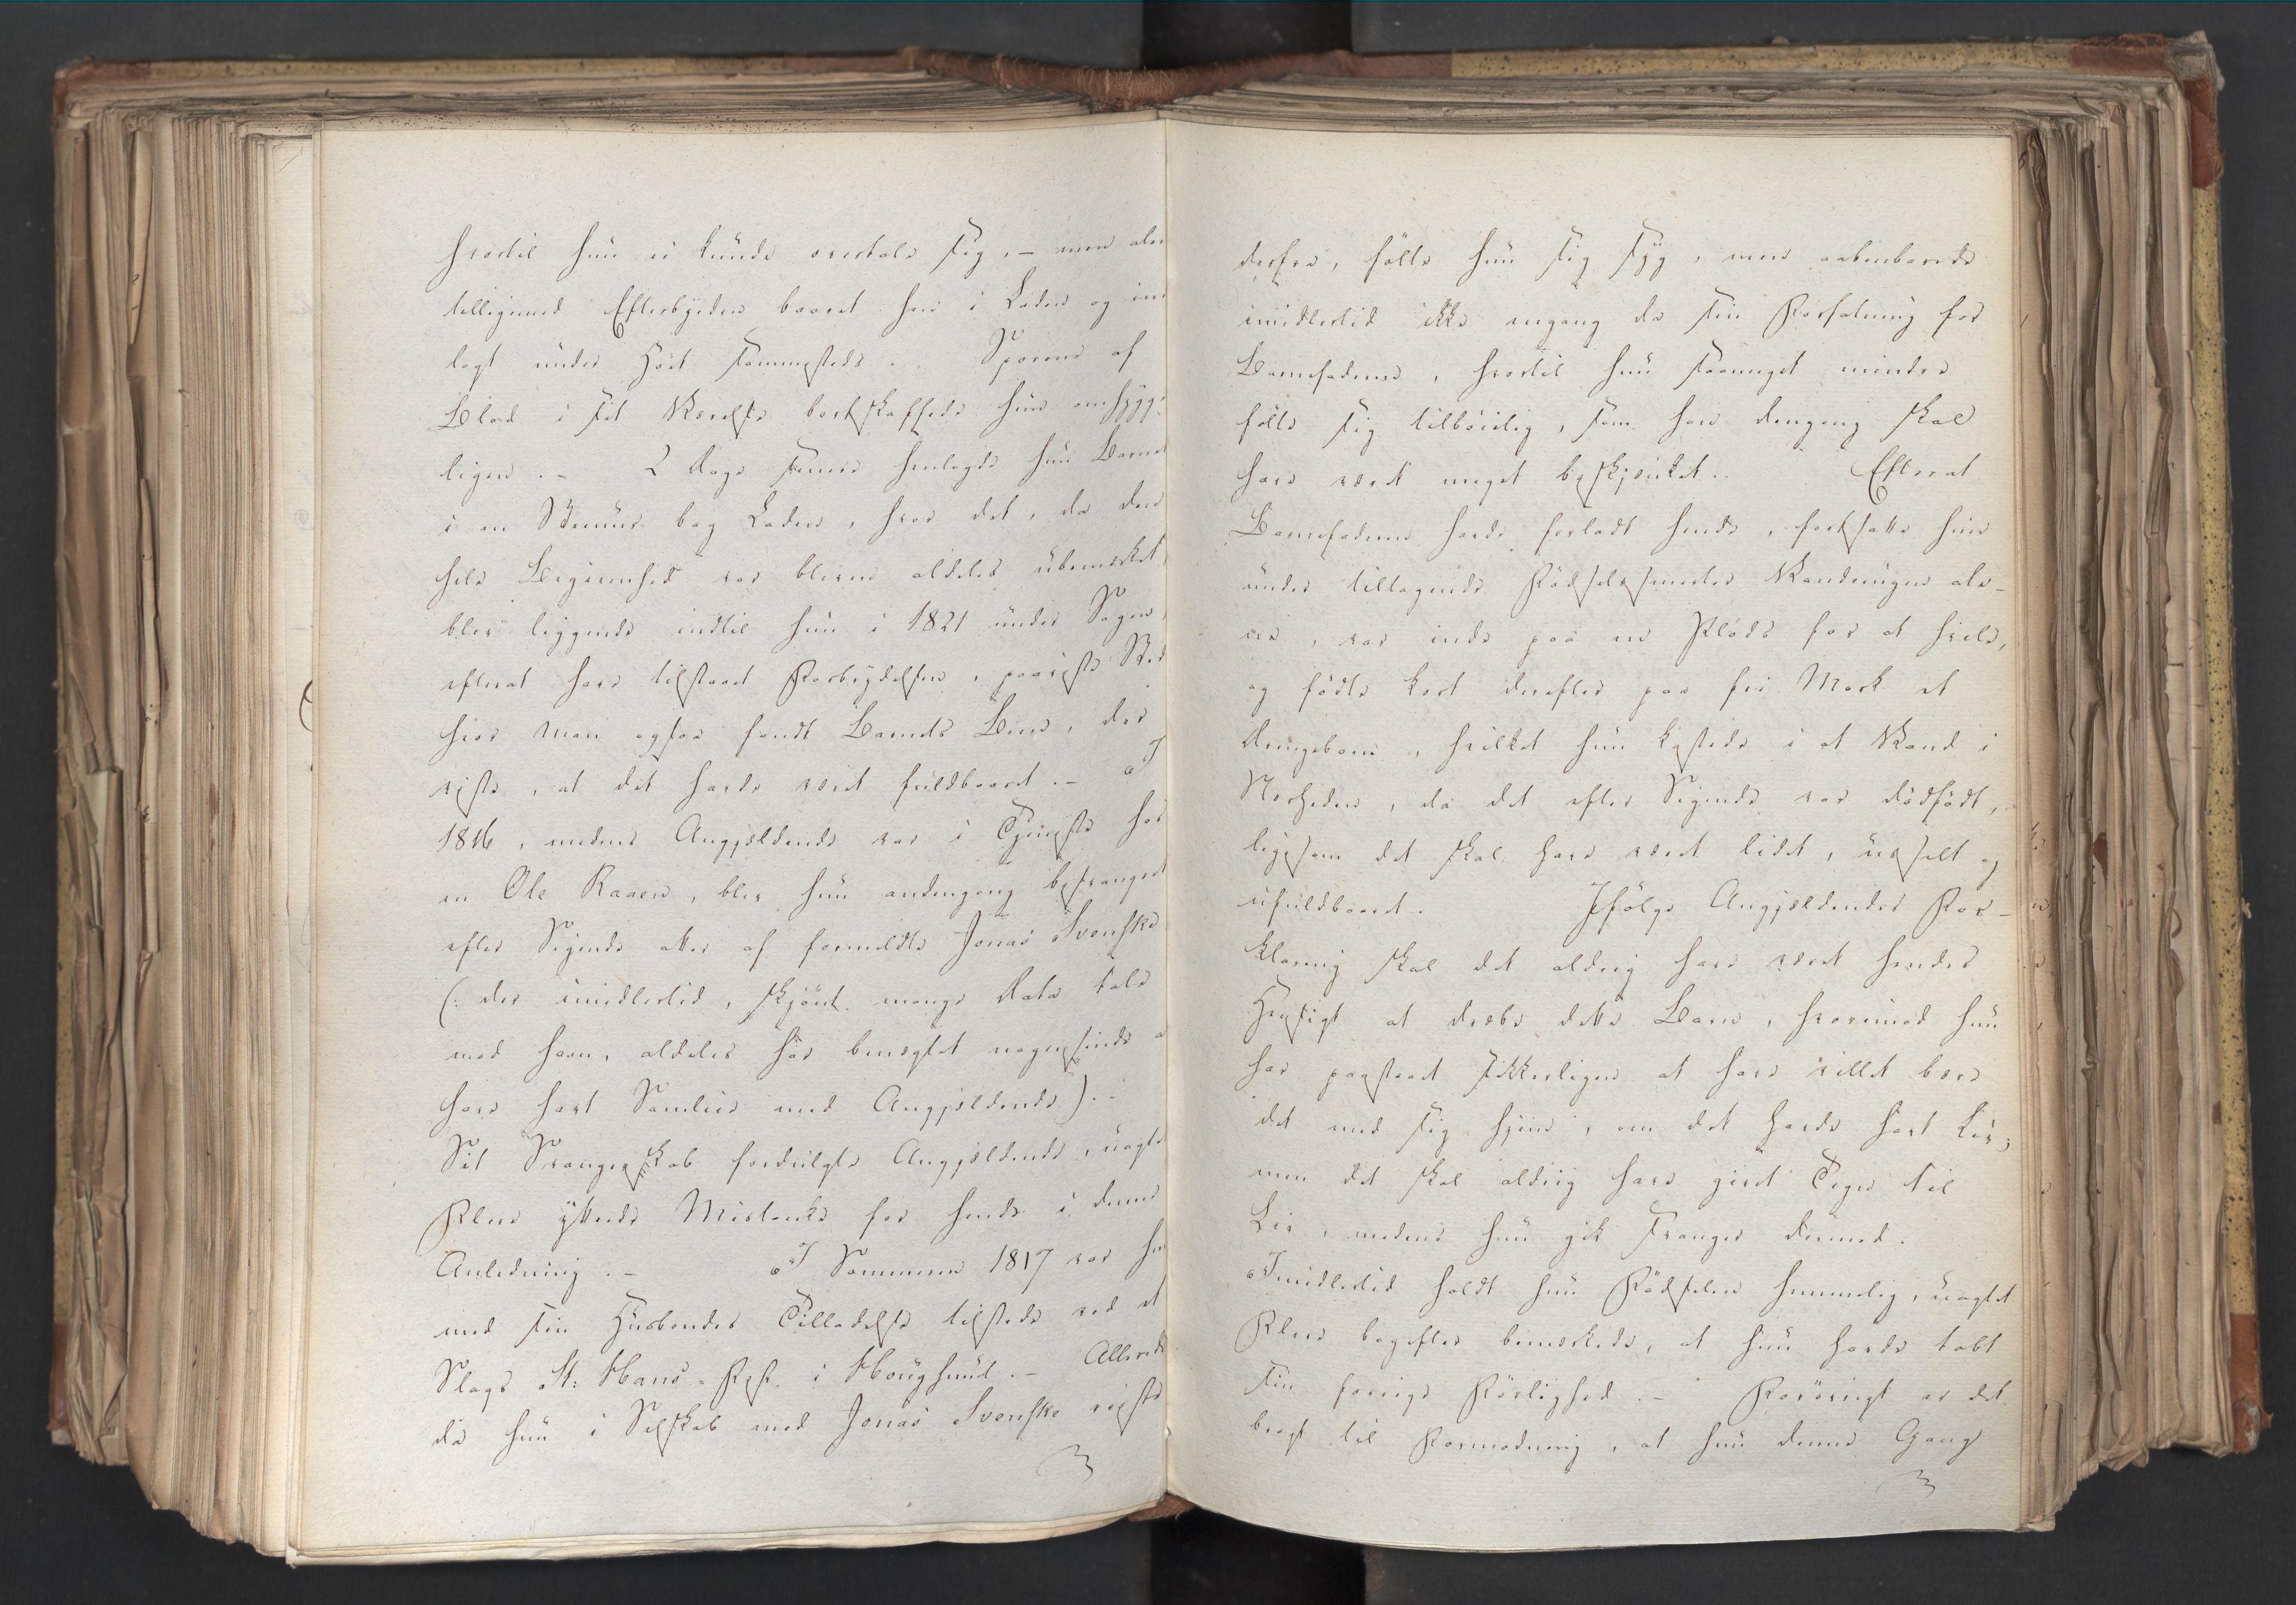 hvortil hun ei kunde overtale sig, – men alen
tilligemed Efterbyrden baaret hen i Laden og ind
lagt under Höet sammesteds. Sporene af
Blod i sit Værelse bortskaffede hun omhygge
ligen. – 2 Dage senere henlagde hun Barnet
i en Steenuur bag Laden, hvor det, da den
hele Begivenhed var bleven aldeles ubemærket,
blev liggende indtil hun i 1821 under Sagen,
efterat have tilstaaet Forbrydelsen, paaviste Sted
hvor man ogsaa fandt Barnets Been, der
viste, at det havde været fuldbaaret. – I
1816, medens Angjældende var i Tjeneste hos
en Ole Raaen, blev hun andengang besvangret
efter Sigende atter af formeldte Jonas Svenske
(: der imidlertid, skjönt mange Data tale
mod ham, aldeles har benægtet nogensinde a
have havt Samleie med Angjældende). –
Sit Svangerskab fordulgte Angjældende, uagte
Flere yttrede Mistanke for hende i denne
Anledning. – I Sommeren 1817 var hun
med sin Huusbondes Tilladelse tilstede ved et
Slags St: Hans-Fest i Hougsund. – Allerede
da hun i Selskab med Jonas Svenske reiste
derfra, fölte hun sig syg, men aabenbarede
imidlertid ikke engang da sin Forfatning for
Barnefaderen, hvortil hun saameget mindre
fölte sig tilböielig, som han dengang skal
have været meget beskjænket. Efterat
Barnefaderen havde forladt hende, fortsatte hun
under tiltagende Födselssmerter Vandringen ale-
ne, var inde paa en Plads for at hvile,
og födte kort derefter paa fri Mark et
Drengebarn, hvilket hun kastede i et Vand i
Nærheden, da det efter Sigende var dödfödt,
ligesom det skal have været lidet, uselt og
ufuldbaaret. Ifölge Angjældendes For-
klaring skal det aldrig have været hendes
Hensigt at dræbe dette Barn, hvorimod hun
har paastaaet sikkerligen at have villet bære
det med sig hjem, om det havde havt Liv;
men det skal aldrig have givet Tegn til
Liv, medens hun gik svanger dermed.
Imidlertid holdt hun Födselen hemmelig, uagtet
Flere bagefter bemærkede, at hun havde tabt
sin forrige Förlighed. – Forövrigt er det
bragt til Formodning, at hun denne Gang